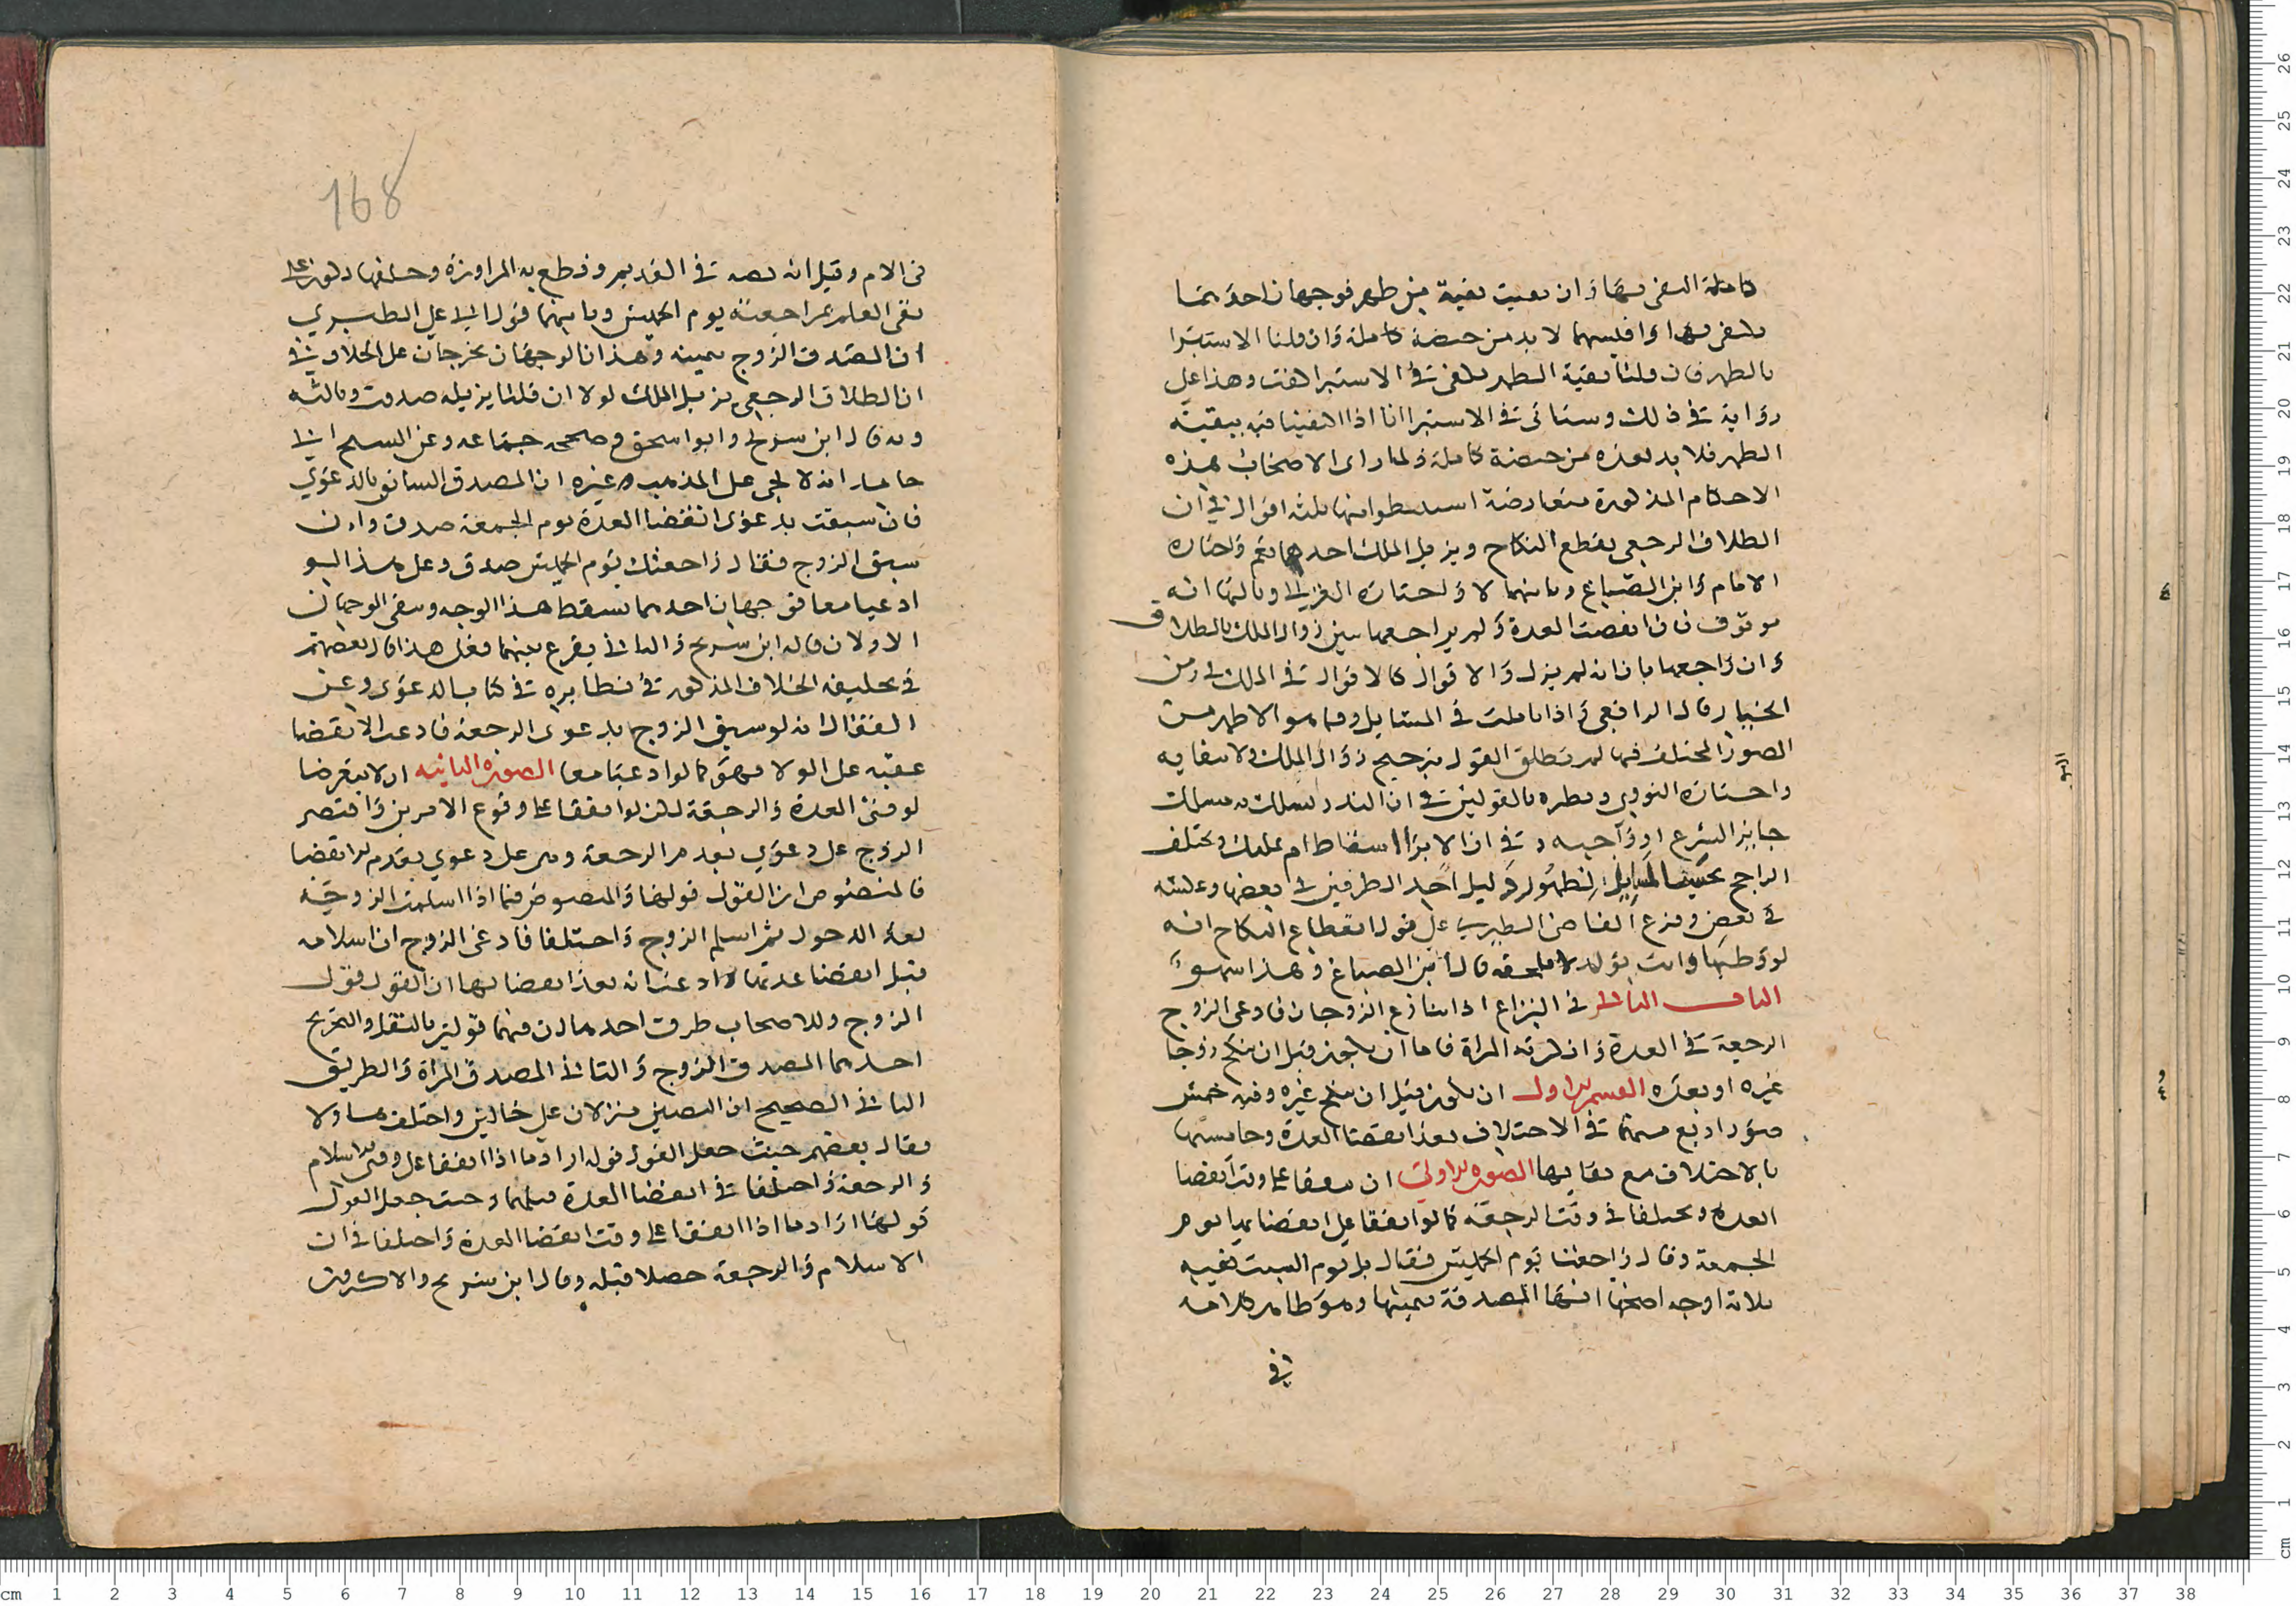 كاملة اكتفى بها وان بقيت بقية من طهر فوجهان احدهما
يكتفى بها واقيسهما لا بد من حيضة كاملة وان قلنا الاستبرا
بالطهر فان قلنا بقية الطهر تكفى في الاستبرا كفت وهذا على
رواية في ذلك وستاتى في الاستبرا انا اذا اكتفينا فيه ببقية
الطهر فلا بد بعده من حيضة كاملة ولما راى الاصحاب هذه
الاحكام المذكورة متعارضة استنبطوا منها ثلثة اقوال في ان
الطلاق الرجعى يقطع النكاح ويزيل الملك احدهما نعم واختاره
الامام وابن الصباغ وثانيهما لا واختاره الغزالي وثالثها انه
موقوف فان انقضت العدة ولم يراجعها تبين زوال الملك بالطلاق
وان راجعها بان انه لم يزل والاقوال كالاقوال في الملك في زمن
الخيار قال الرافعي واذا تاملت في المسايل وما هو الاظهر من
الصور المختلف فيها لم تطلق القول بترجيح زوال الملك ولا بقايه
واختاره النووي ونظره بالقولين في ان النذر يسلك به مسلك
جايز الشرع او واجبه وفي ان الابرا اسقاط ام تمليك ويختلف
الراجح بحسب المسايل لظهور دليل احد الطرفين في بعضها وعكسه
في بعض وفرع القاضى الطبري على قول انقطاع النكاح انه
لو وطيها واتت بولد لا يلحقه قال ابن الصباغ وهذا سهو
الباب الثانى في النزاع اذا تنازع الزوجان فادعى الزوج
الرجعة في العدة وانكرته المراة فاما ان يكون قبل ان تنكح زوجا
غيره او بعده القسم الاول ان يكون قبل ان تنكح غيره وفيه خمس
صور اربع منها في الاختلاف بعد انقضا العدة وخامستها
بالاختلاف مع بقايها الصورة الاولى ان يتفقا على وقت انقضا
العدة ويختلفا في وقت الرجعة كما لو اتفقا على انقضايها يوم
الجمعة وقال راجعتها يوم الخميس فقالت بل يوم السبت ففيه
ثلاثة اوجه اصحها انها المصدقة بيمينها وهو ظاهر كلامه
في
168
في الام وقيل انه نصه في القديم وقطع به المراوزة وحلفها يكون على
نفى العلم بمراجعته يوم الخميس وثانيهما قول ابى على الطبري
ان المصدق الزوج بيمينه وهذان الوجهان يخرجان على الخلاف في
ان الطلاق الرجعي يزيل الملك اولا ان قلنا يزيله صدقت وثالثه
وبه قال ابن سريج وابو اسحق وصححه جماعه وعن الشيخ ابى
حامد انه لا يجى على المذهب غيره ان المصدق السابق بالدعوى
فان سبقت بدعوى انقضا العدة يوم الجمعة صدقت وان
سبق الزوج فقال راجعتك يوم الخميس صدق وعلى هذا لو
ادعيا معا فوجهان احدهما يسقط هذا الوجه ويبقى الوجهان
الاولان قاله ابن سريج والثانى يقرع بينهما فعلى هذا قال بعضهم
في تحليفه الخلاف المذكور في نظايره في كتاب الدعوى وعن
القفال انه لو سبق الزوج بدعوى الرجعة فادعت الانقضا
عقبه على الولا فهو كما لو ادعيا معا الصورة الثانيه ان لا يتعرضا
لوقتى العدة والرجعة لكن لو اتفقا على وقوع الامرين واقتصر
الزوج على دعوى تقدم الرجعة وهى على دعوى تقدم الانقضا
فالمنصوص ان القول قولها والمنصوص فيما اذا اسلمت الزوجة
بعد الدخول ثم اسلم الزوج واختلفا فادعى الزوج ان اسلامه
قبل انقضا عدتها وادعت انه بعد انقضايها ان القول قول
الزوج وللاصحاب طرق احدها ان فيهما قولين بالنقل والتخريج
احدهما المصدق الزوج والثانى المصدق المراة والطريق
الثانى الصحيح ان النصين منزلان على حالين واختلف هاولا
فقال بعضهم حيث جعل القول قوله اراد ما اذا اتفقا على وقتى الاسلام
والرجعة واختلفا في انقضا العدة قبلهما وحيث جعل القول
قولها اراد ما اذا اتفقا على وقت انقضا العدة واختلفا في ان
الاسلام والرجعة حصلا قبله وقال ابن سريج والاكثرون